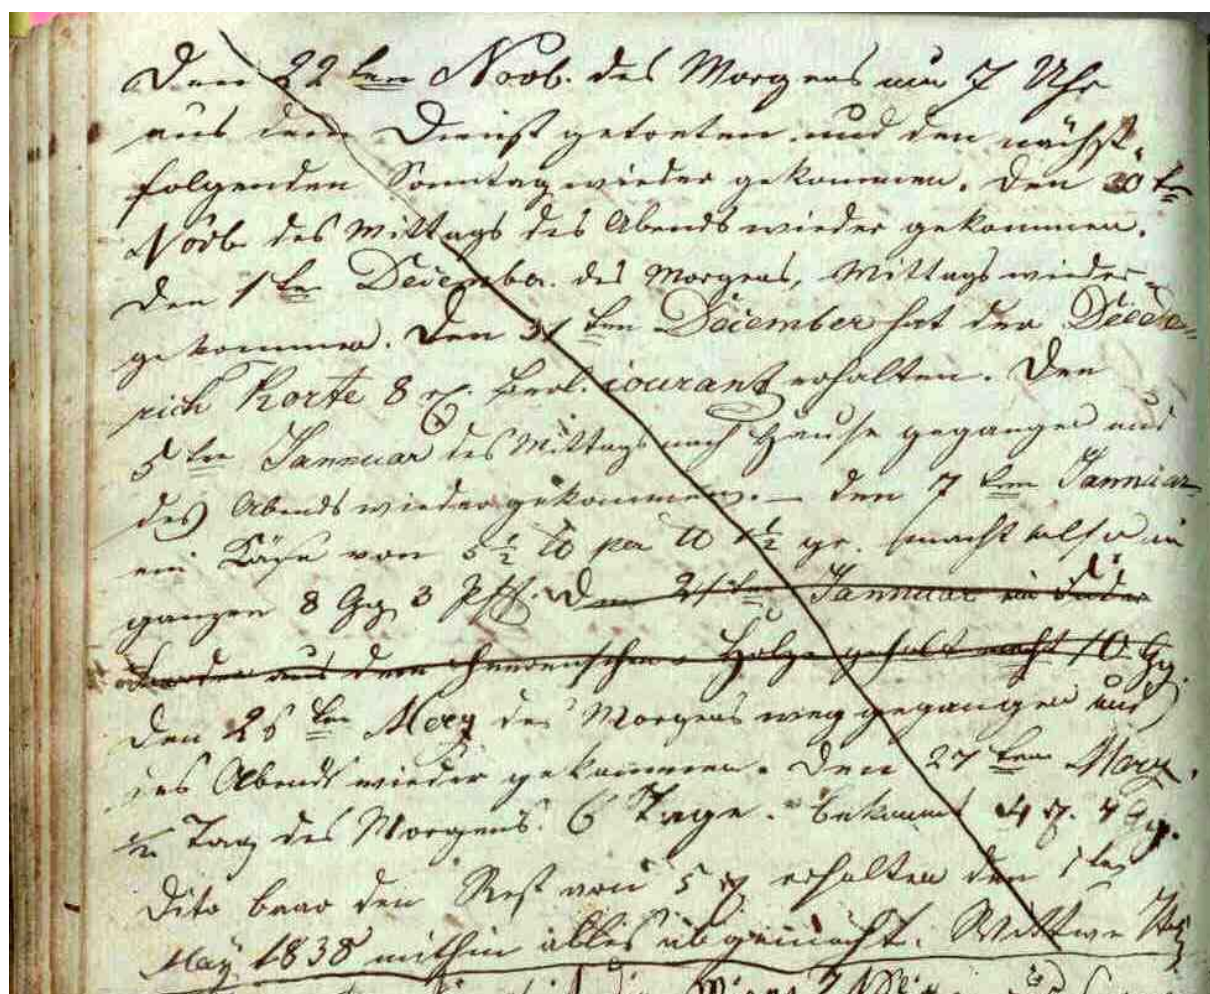 Den 22ten Novb. des Morgens um 7 Uhr
aus dem Dienst getreten und den nächst-
folgenden Sonntag wieder gekommen. Den 30ten
Novb des Mittags des Abends wieder gekommen.
Den 1ten Decembr. des Morgens, Mittags wieder-
gekommen. Den 31ten December hat der Diede-
rich Korte 8 rt. Berl. courant erhalten. Den
5ten Jannuar des Mittags nach Hause gegangen und
des Abends wieder gekommen. – Den 7ten Jannuar
ein Käse von 5 1/2 lb per lb 1 1/2 gr. macht also im
ganzen 8 Gg 3 Pf. Den 21ten Jannuar ein Fuder
aus dem Holze geholt macht 10 Gg.
Den 25ten Merz des Morgens weg gegangen und
des Abends wieder gekommen. Den 27ten Merz
1/2 Tag des Morgens. 6 Tage. bekommt 4 rt. 4 Gg.
Dito baar den Rest von 5 rt erhalten den 1ten
May 1838 mithin alles abgemacht. Wittwe